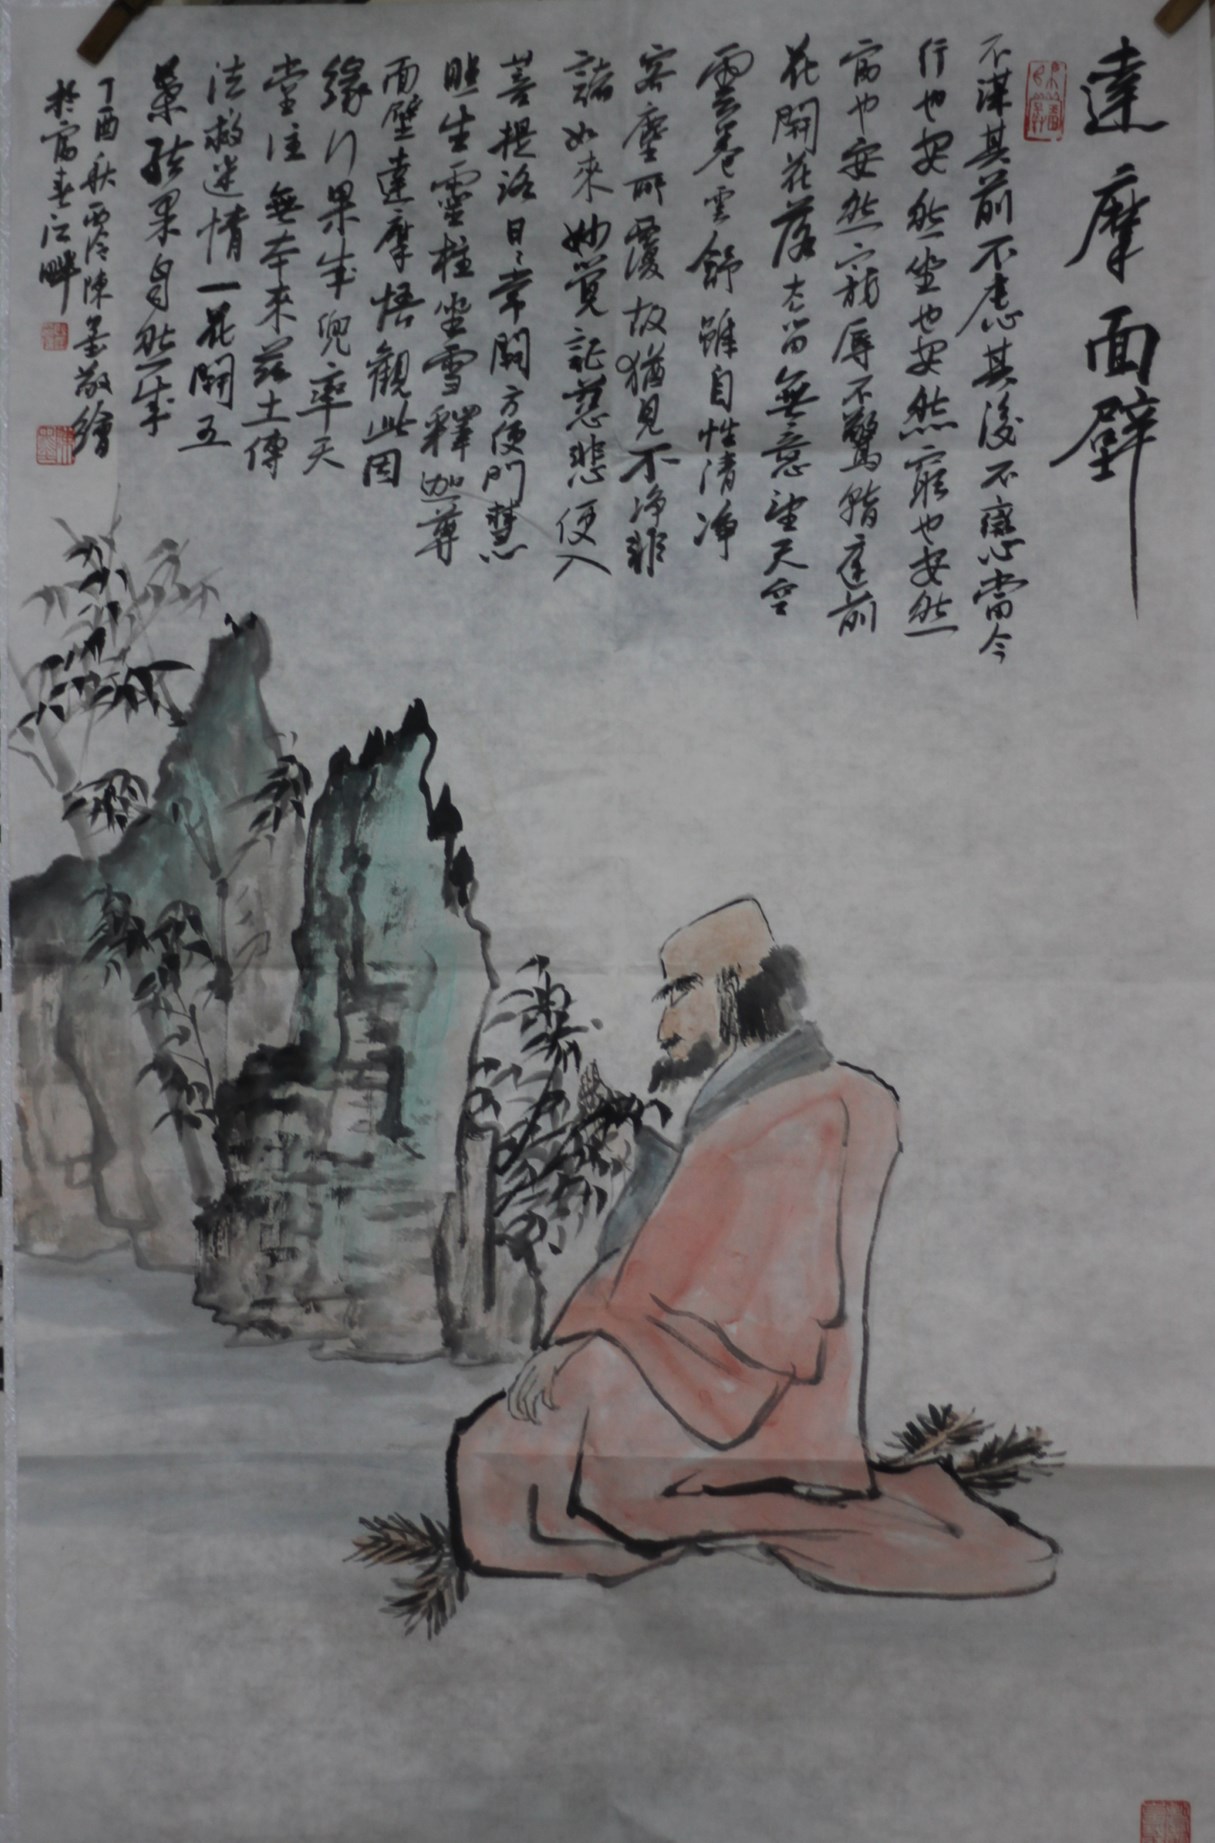 達摩面壁
不謀其前不慮其後不戀當今
行也安然坐也安然窮也安然
富也安然寵辱不驚庭前
花開花落去留無意望天空
雲卷雲舒雖自性清淨
客塵所覆故猶見不淨非
諸如來妙覺証慈悲便入
菩提路日日常開方便門慧
照生靈柱坐雪釋迦尊
面壁達摩悟觀此因
緣行果成兜率天
堂注無本來茲土傳
法救迷情一花開五
葉結果自然成
丁酉秋西泠陳墨敬繪
於富春江畔